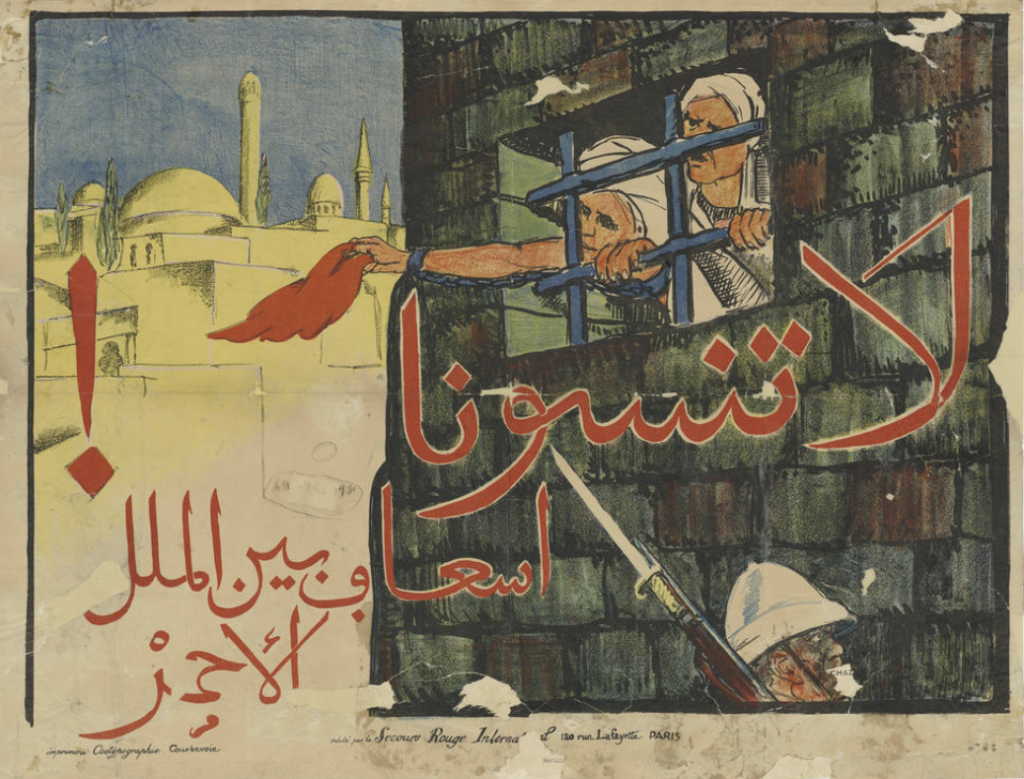 لا تنسونا !
اسعاف بين الملل
الأحمر
imprimerie Cootypographie Courbevoie
édité par le Secours Rouge Interna al 120 rue Lafayette PARIS